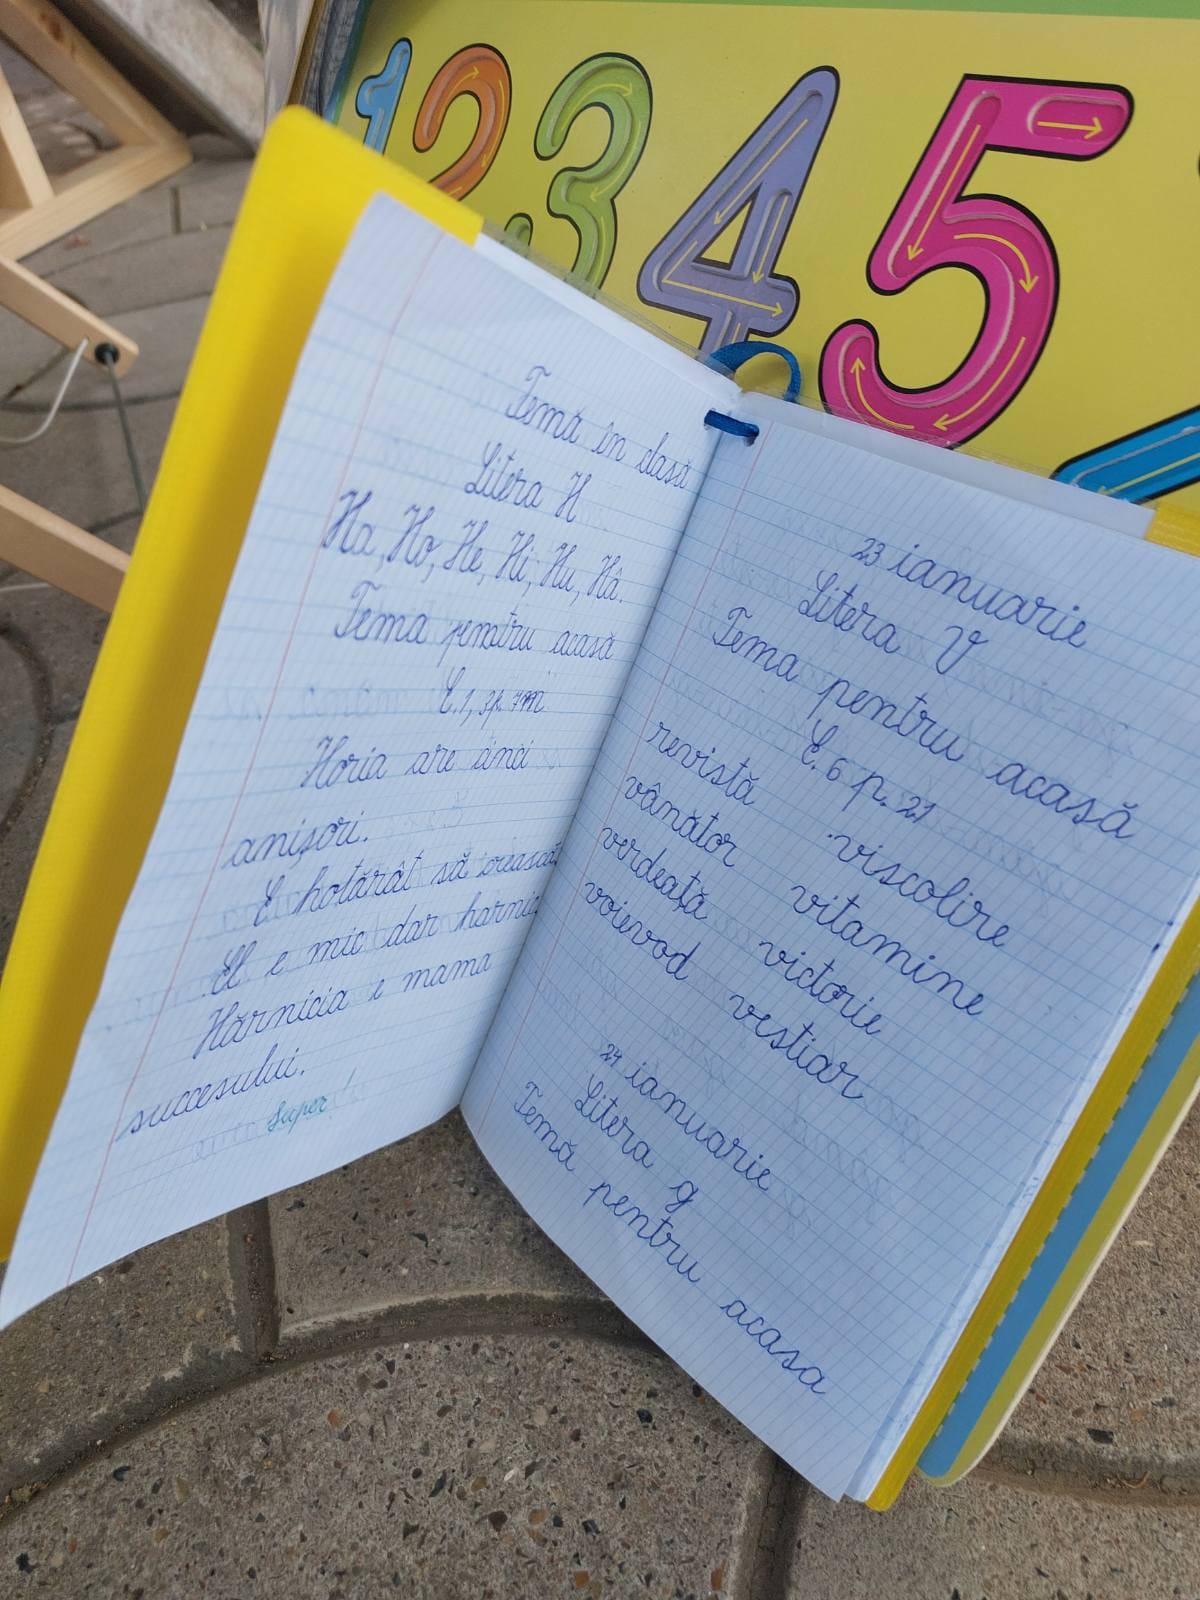 1 2 3 4 5
Temă în clasă
Litera H
Ha, Ho, He, Hi, Hu, Hâ.
Tema pentru acasă
E.1, p.
Horia are cinci
amișori.
E hotărât să crească.
El e mic dar harnic.
Hărnicia e mama
succesului.
Super!
23 ianuarie
Litera V
Tema pentru acasă
E. 6 p. 21
revistă viscolire
vânător vitamine
verdeață victorie
voievod vestiar
24 ianuarie
Litera g
Temă pentru acasa